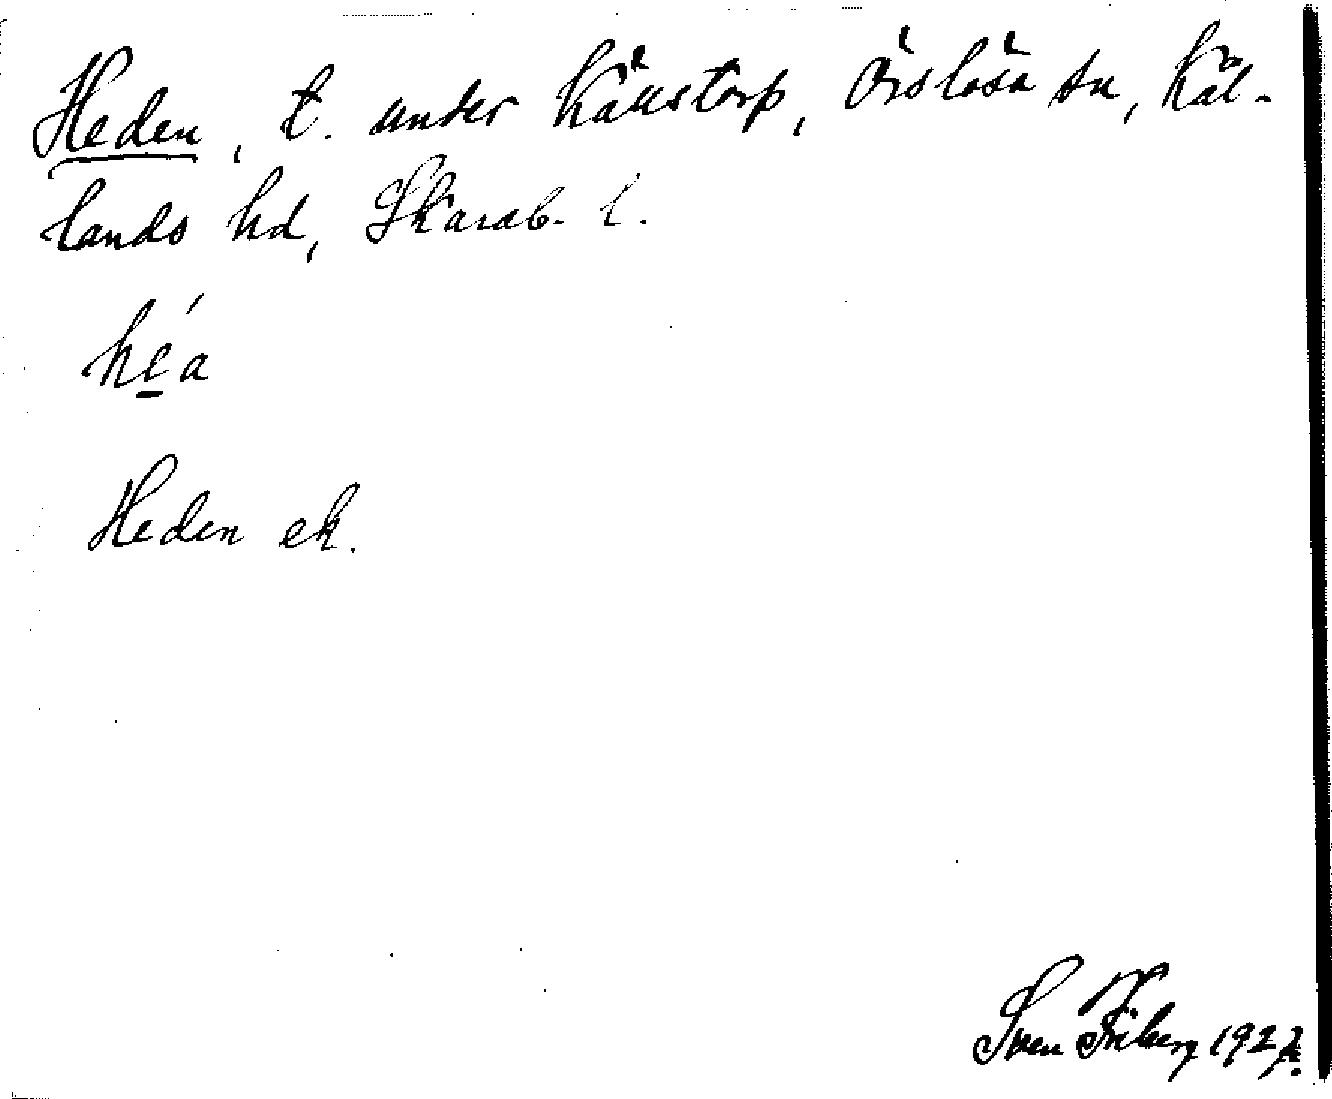 Heden, t. under Källstorp, Örslösa sn, Kål-
lands hd, Skarab. l.
he̲´a
Heden ek.
Sven Friberg 1927.